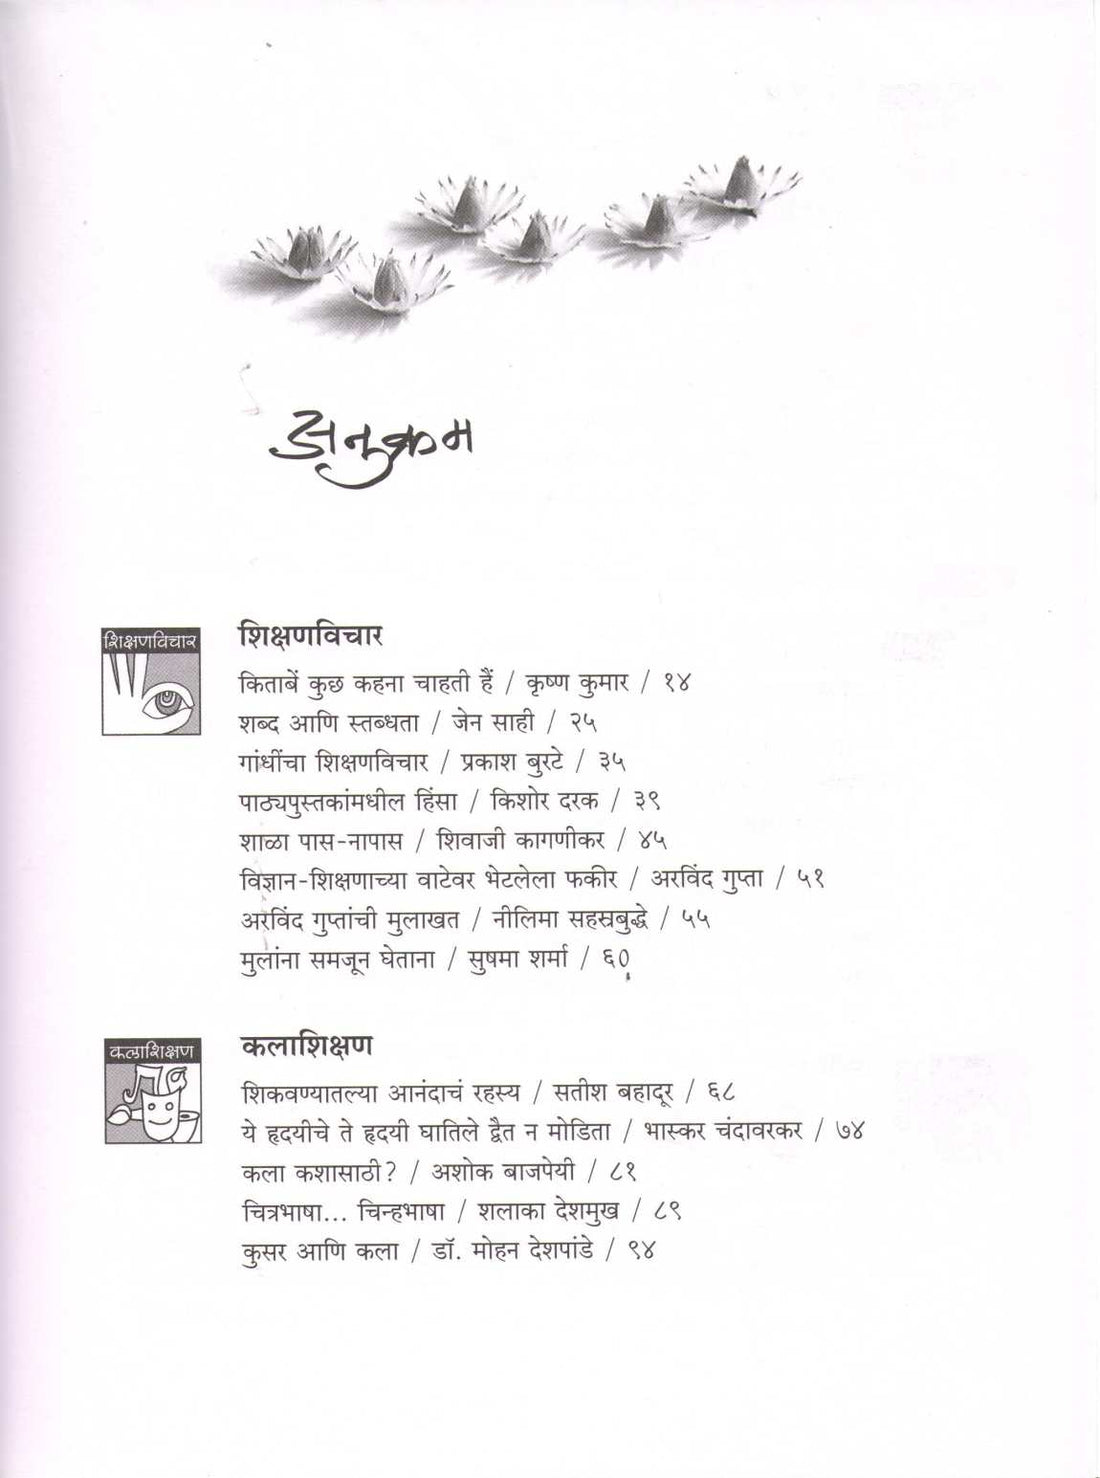 अनुक्रम
शिक्षणविचार
शिक्षणविचार
किताबें कुछ कहना चाहती हैं / कृष्ण कुमार / १४
शब्द आणि स्तब्धता / जेन साही / २५
गांधींचा शिक्षणविचार / प्रकाश बुरटे / ३५
पाठ्यपुस्तकांमधील हिंसा / किशोर दरक / ३९
शाळा पास-नापास / शिवाजी कागणीकर / ४५
विज्ञान-शिक्षणाच्या वाटेवर भेटलेला फकीर / अरविंद गुप्ता / ५१
अरविंद गुप्तांची मुलाखत / नीलिमा सहस्रबुद्धे / ५५
मुलांना समजून घेताना / सुषमा शर्मा / ६०
कलाशिक्षण
कलाशिक्षण
शिकवण्यातल्या आनंदाचं रहस्य / सतीश बहादूर / ६८
ये हृदयीचे ते हृदयी घातिले द्वैत न मोडिता / भास्कर चंदावरकर / ७४
कला कशासाठी? / अशोक बाजपेयी / ८१
चित्रभाषा... चिन्हभाषा / शलाका देशमुख / ८९
कुसर आणि कला / डॉ. मोहन देशपांडे / ९४